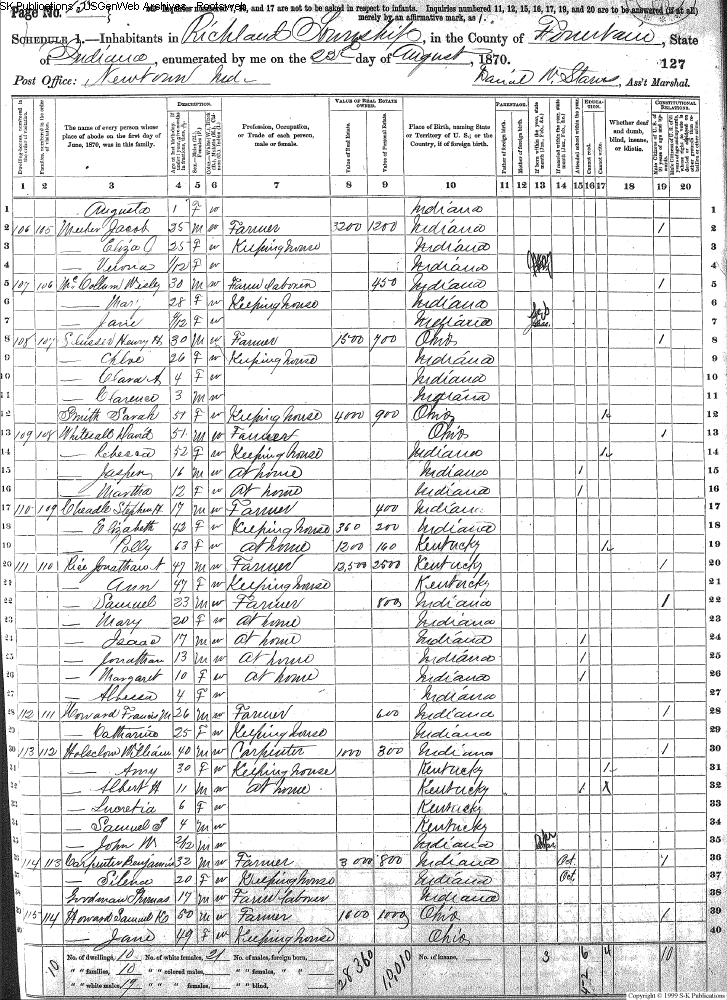 SK Publications / USGenWeb Archives - Rootsweb
Page No.
Inquiries numbered 7, 16, and 17 are not to be asked in respect to infants. Inquiries numbered 11, 12, 15, 16, 17, 19, and 20 are to be answered (if at all)
merely by an affirmative mark, as /.
SCHEDULE 1.—Inhabitants in Richland Township, in the County of Fountain, State
of Indiana, enumerated by me on the 22d day of August, 1870. 127
Post Office: Newtown Ind. Ass't Marshal.
DESCRIPTION. VALUE OF REAL ESTATE OWNED. PARENTAGE. EDUCATION. CONSTITUTIONAL RELATIONS.
The name of every person whose place of abode on the first day of June, 1870, was in this family.
Profession, Occupation, or Trade of each person, male or female.
Value of Real Estate. Value of Personal Estate.
Place of Birth, naming State or Territory of U. S.; or the Country, if of foreign birth.
Father of foreign birth. Mother of foreign birth.
Attended school within the year. Cannot read. Cannot write.
Whether deaf and dumb, blind, insane, or idiotic.
1 2 3 4 5 6 7 8 9 10 11 12 13 14 15 16 17 18 19 20
1 Augusta 1 F W Indiana 1
2 106 105 Jacob 25 M W Farmer 3200 1200 Indiana / 2
3 — Eliza 25 F W Keeping house Indiana 3
4 — Verona /12 F W Indiana 4
5 107 106 McCollum Wisley 30 M W Farm Laborer 450 Indiana / 5
6 — Mary 28 F W Keeping house Indiana 6
7 — Jane /12 F W Indiana 7
8 108 107 Henry H. 30 M W Farmer 1500 700 Ohio / 8
9 — Chloe 26 F W Keeping house Indiana 9
10 — Clara A 4 F W Indiana 10
11 — Clarence 3 M W Indiana 11
12 Smith Sarah 57 F W Keeping house 4000 900 Ohio / 12
13 109 108 Whitesall David 51 M W Farmer Ohio / 13
14 — Rebecca 52 F W Keeping house Indiana / 14
15 — Jasper 16 M W At home Indiana / 15
16 — Martha 12 F W At home Indiana / 16
17 110 109 Cheadle Stephen H. 17 M W Farmer 400 Indiana 17
18 — Elizabeth 42 F W Keeping house 360 200 Indiana 18
19 — Polly 63 F W At home 1200 160 Kentucky / 19
20 111 110 Rice Jonathan A 47 M W Farmer 12,500 2500 Kentucky / 20
21 — Ann 47 F W Keeping house Kentucky 21
22 — Samuel 23 M W Farmer 800 Indiana / 22
23 — Mary 20 F W At home Indiana 23
24 — Isaac 17 M W At home Indiana / 24
25 — Jonathan 13 M W At home Indiana / 25
26 — Margaret 10 F W At home Indiana / 26
27 — 4 F W Indiana 27
28 112 111 Howard Francis M 26 M W Farmer 600 Indiana / 28
29 — Catharine 25 F W Keeping house Indiana 29
30 113 112 Holsclow William 40 M W Carpenter 1000 300 Indiana / 30
31 — Amy 30 F W Keeping house Kentucky / 31
32 — Albert H 11 M W At home Kentucky / 32
33 — Lucretia 6 F W Kentucky 33
34 — Samuel 4 M W Kentucky 34
35 — John W. 2/12 M W Indiana 35
36 114 113 Carpenter Benjamin 32 M W Farmer 3000 800 Indiana Oct / 36
37 — Silena 20 F W Keeping house Indiana Oct 37
38 Goodman Thomas 17 M W Farm Laborer Indiana 38
39 115 114 Howard Samuel 50 M W Farmer 1600 1000 Ohio / 39
40 — Jane 49 F W Keeping house Ohio 40
10 No. of dwellings, 10 No. of white females, 21 No. of males, foreign born, 28360 No. of insane, 3 6 4 10
" " families, 10 " " colored males, " " females,
" " white males, 19 " " females, " " blind,
Copyright © 1999 S-K Publications